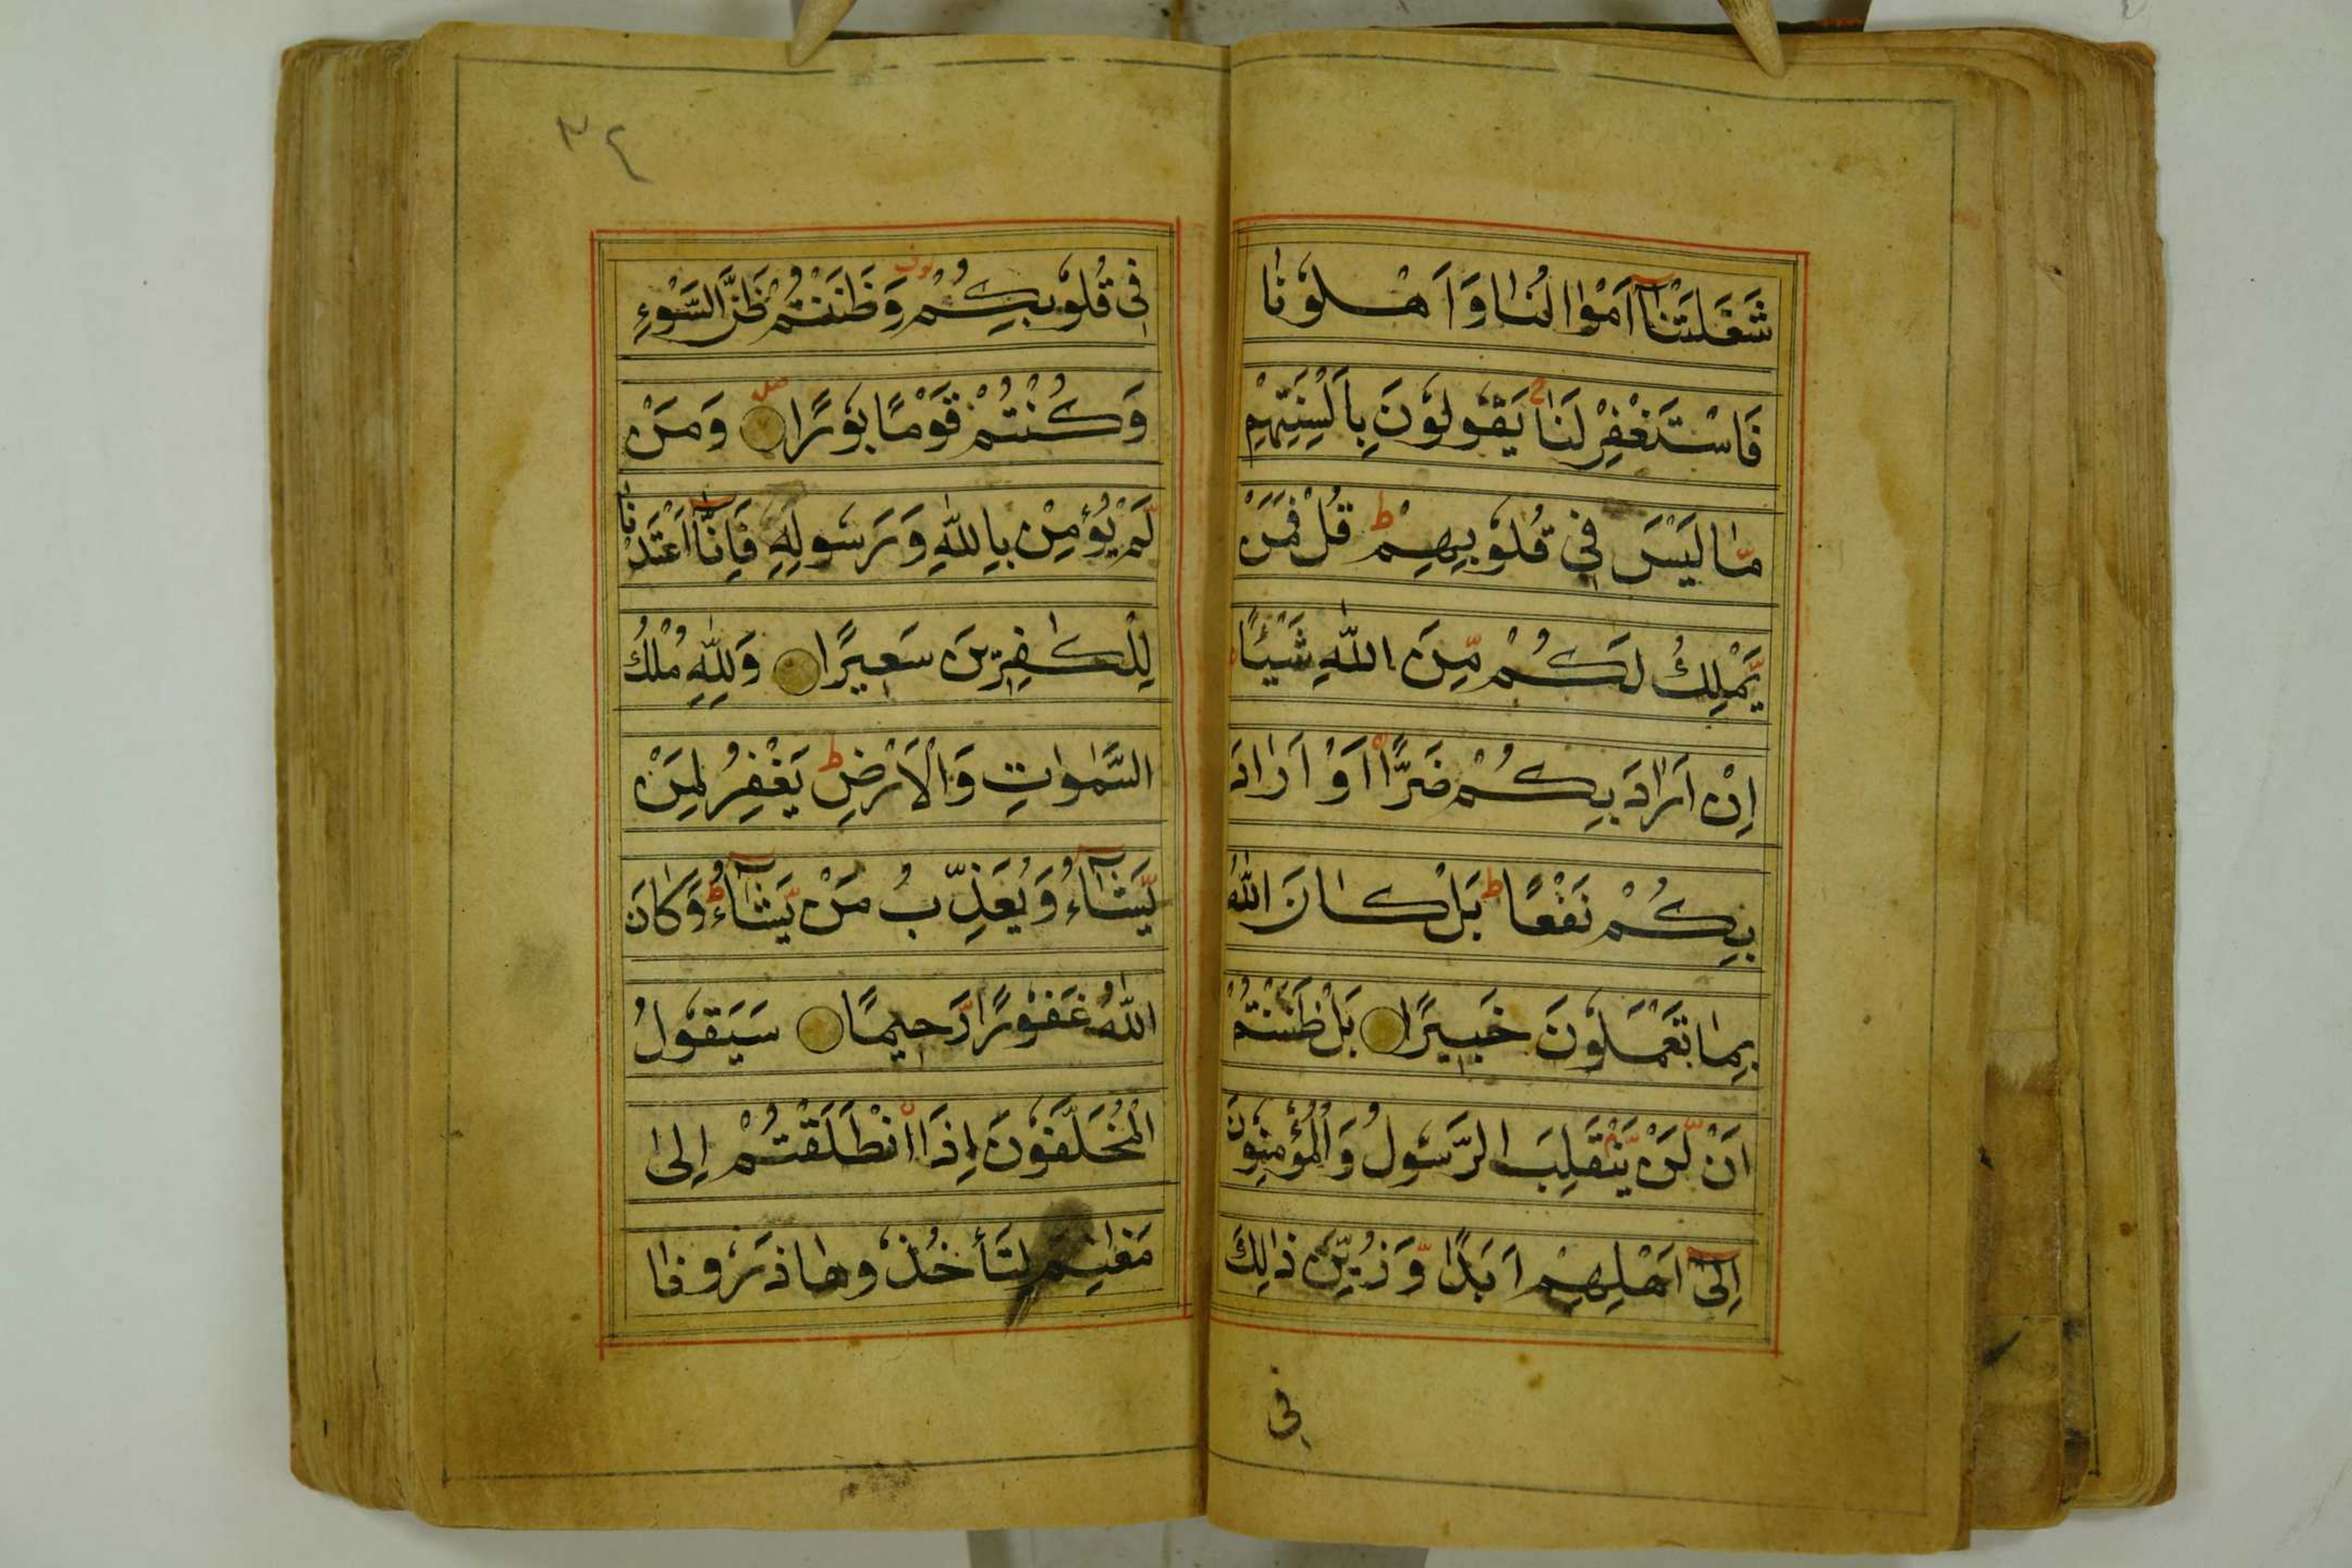 شَغَلَتْنَآ اَمْوَالُنَا وَاَهْلُوْنَا
فَاسْتَغْفِرْ لَنَا ۚ يَقُوْلُوْنَ بِاَلْسِنَتِهِمْ
مَّا لَيْسَ فِيْ قُلُوْبِهِمْ ؕ قُلْ فَمَنْ
يَّمْلِكُ لَكُمْ مِّنَ اللّٰهِ شَيْـًٔا
اِنْ اَرَادَ بِكُمْ ضَرًّا اَوْ اَرَادَ
بِكُمْ نَفْعًا ؕ بَلْ كَانَ اللّٰهُ
بِمَا تَعْمَلُوْنَ خَبِيْرًا ۝ بَلْ ظَنَنْتُمْ
اَنْ لَّنْ يَّنْقَلِبَ الرَّسُوْلُ وَالْمُؤْمِنُوْنَ
اِلٰٓى اَهْلِيْهِمْ اَبَدًا وَّزُيِّنَ ذٰلِكَ
فِي
٣٤
فِيْ قُلُوْبِكُمْ وَظَنَنْتُمْ ظَنَّ السَّوْءِ
وَكُنْتُمْ قَوْمًا بُوْرًا ۝ وَمَنْ
لَّمْ يُؤْمِنْ بِاللّٰهِ وَرَسُوْلِهٖ فَاِنَّآ اَعْتَدْنَا
لِلْكٰفِرِيْنَ سَعِيْرًا ۝ وَلِلّٰهِ مُلْكُ
السَّمٰوٰتِ وَالْاَرْضِ ؕ يَغْفِرُ لِمَنْ
يَّشَآءُ وَيُعَذِّبُ مَنْ يَّشَآءُ ؕ وَكَانَ
اللّٰهُ غَفُوْرًا رَّحِيْمًا ۝ سَيَقُوْلُ
الْمُخَلَّفُوْنَ اِذَا انْطَلَقْتُمْ اِلٰى
مَغَانِمَ لِتَأْخُذُوْهَا ذَرُوْنَا